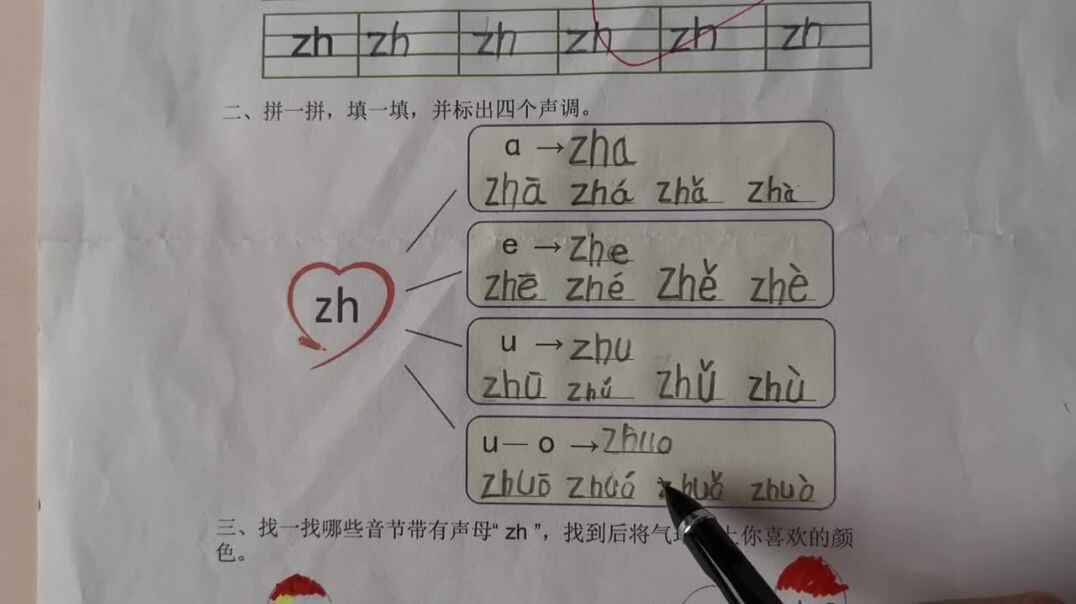 zh zh zh zh zh zh
二、拼一拼，填一填，并标出四个声调。
a →zha
zhā zhá zhǎ zhà
e →zhe
zhē zhé zhě zhè
zh
u →zhu
zhū zhú zhǔ zhù
u— o →zhuo
zhuō zhuó zhuǒ zhuò
三、找一找哪些音节带有声母“ zh ”，找到后将气 上你喜欢的颜
色。